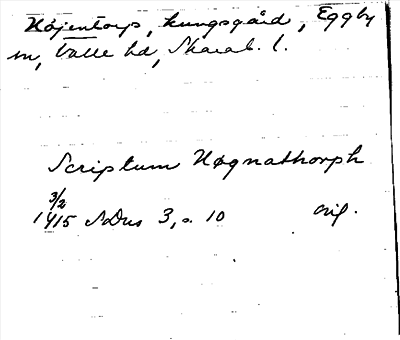 Höjentorp, kungsgård, Eggby
sn, Valle hd, Skarab. l.
Scriptum Høgnathorph
3/2
1415 SDns 3, s. 10 orig.